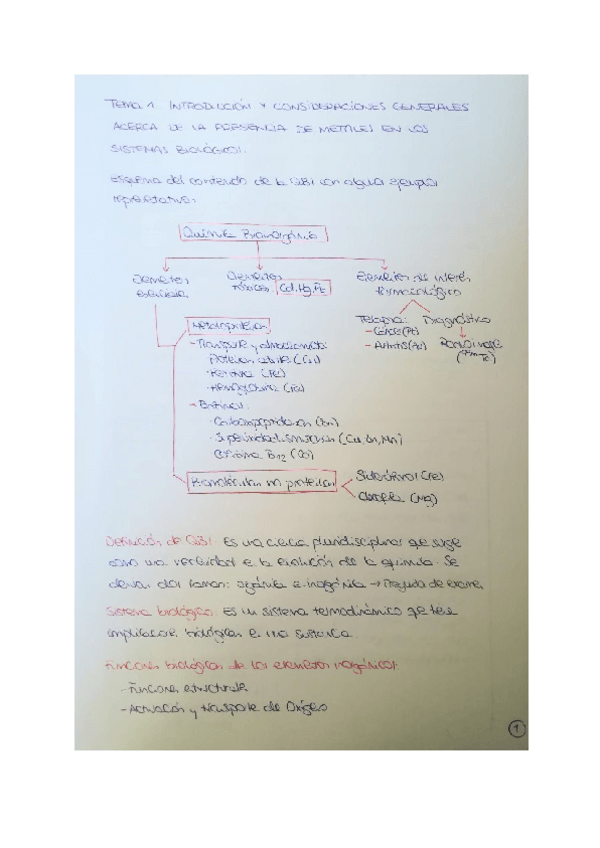 TEMA 1 INTRODUCCIÓN Y CONSIDERACIONES GENERALES
ACERCA DE LA PRESENCIA DE METALES EN LOS
SISTEMAS BIOLÓGICOS.
Esquema del contenido de la QBI con algun ejemplo
representativo:
Química Bioinorgánica
Elementos esenciales
Elementos tóxicos Cd, Hg, Pb
Elementos de interés farmacológico
Terapia:
- Cáncer (Pt)
- Artritis (Au)
Diagnóstico
Radioimagen
(⁹⁹ᵐTc)
Metaloproteínas
- Transporte y almacenamiento:
(Cu)
· Ferritina (Fe)
(Fe)
- Enzimas:
· Carboxipeptidasa (Zn)
· Superóxidodismutasa (Cu, Zn, Mn)
Cobalamina B₁₂ (Co)
Biomoléculas no proteicas
Sideróforos (Fe)
Clorofila (Mg)
Definición de QBI: Es una ciencia pluridisciplinar que surge
como una necesidad en la evolución de la química. Se
dos ramas: orgánica e inorgánica → Pregunta de examen
Sistema biológico: Es un sistema termodinámico que tiene
implicaciones biológicas en una sustancia.
Funciones biológicas de los elementos inorgánicos:
- Funciones estructurales
- Activación y transporte de Oxígeno
1